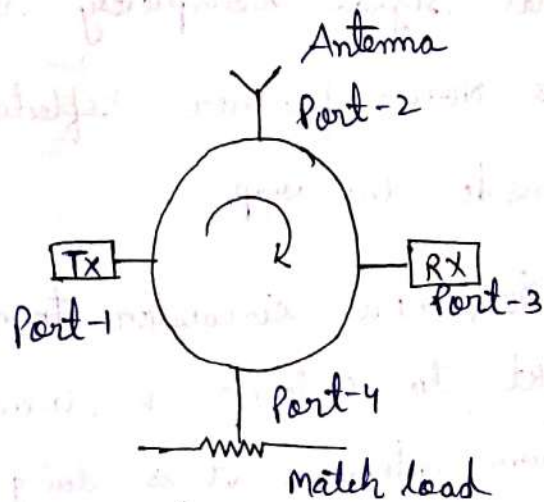 Antenna
Port-2
Tx
Port-1
RX
Port-3
Port-4
Match load